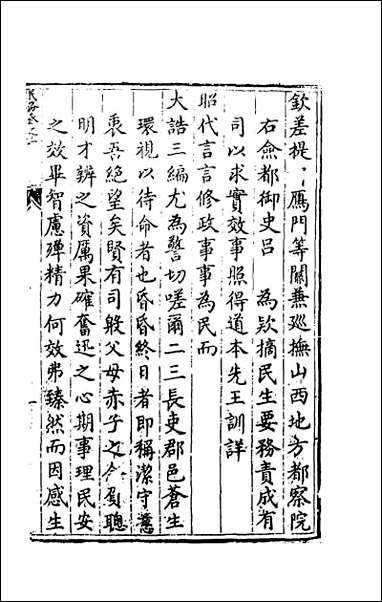 欽差提督鴈門等關兼廵撫山西地方都察院
右僉都御史呂 為欵摘民生要務責成有
司以求實效事照得道本先王訓詳
昭代言言修政事事為民而
大誥三編尤為警切嗟爾二三長吏郡邑蒼生
環視以待命者也昏昏終日者即稱潔守
裏吾絕望矣賢有司殺父母赤子之 負聰
明才辨之資厲果確奮迅之心期事理民安
之效畢智慮殫精力何效弗臻然而因感生